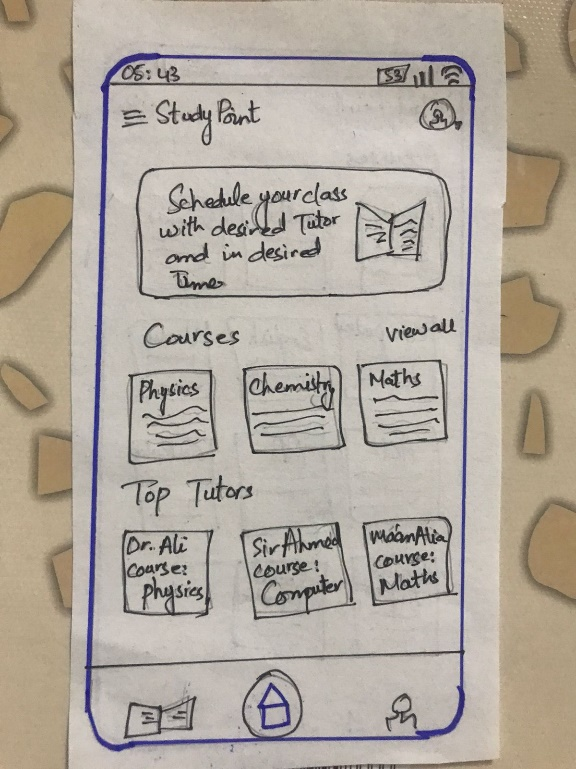 05:43 53
StudyPoint
Schedule your class
with desired Tutor
and in desired
Time
Courses view all
Physics Chemistry Maths
Top Tutors
Dr. Ali
course:
physics
Sir Ahmed
course:
Computer
Ma'am Alia
course:
Maths